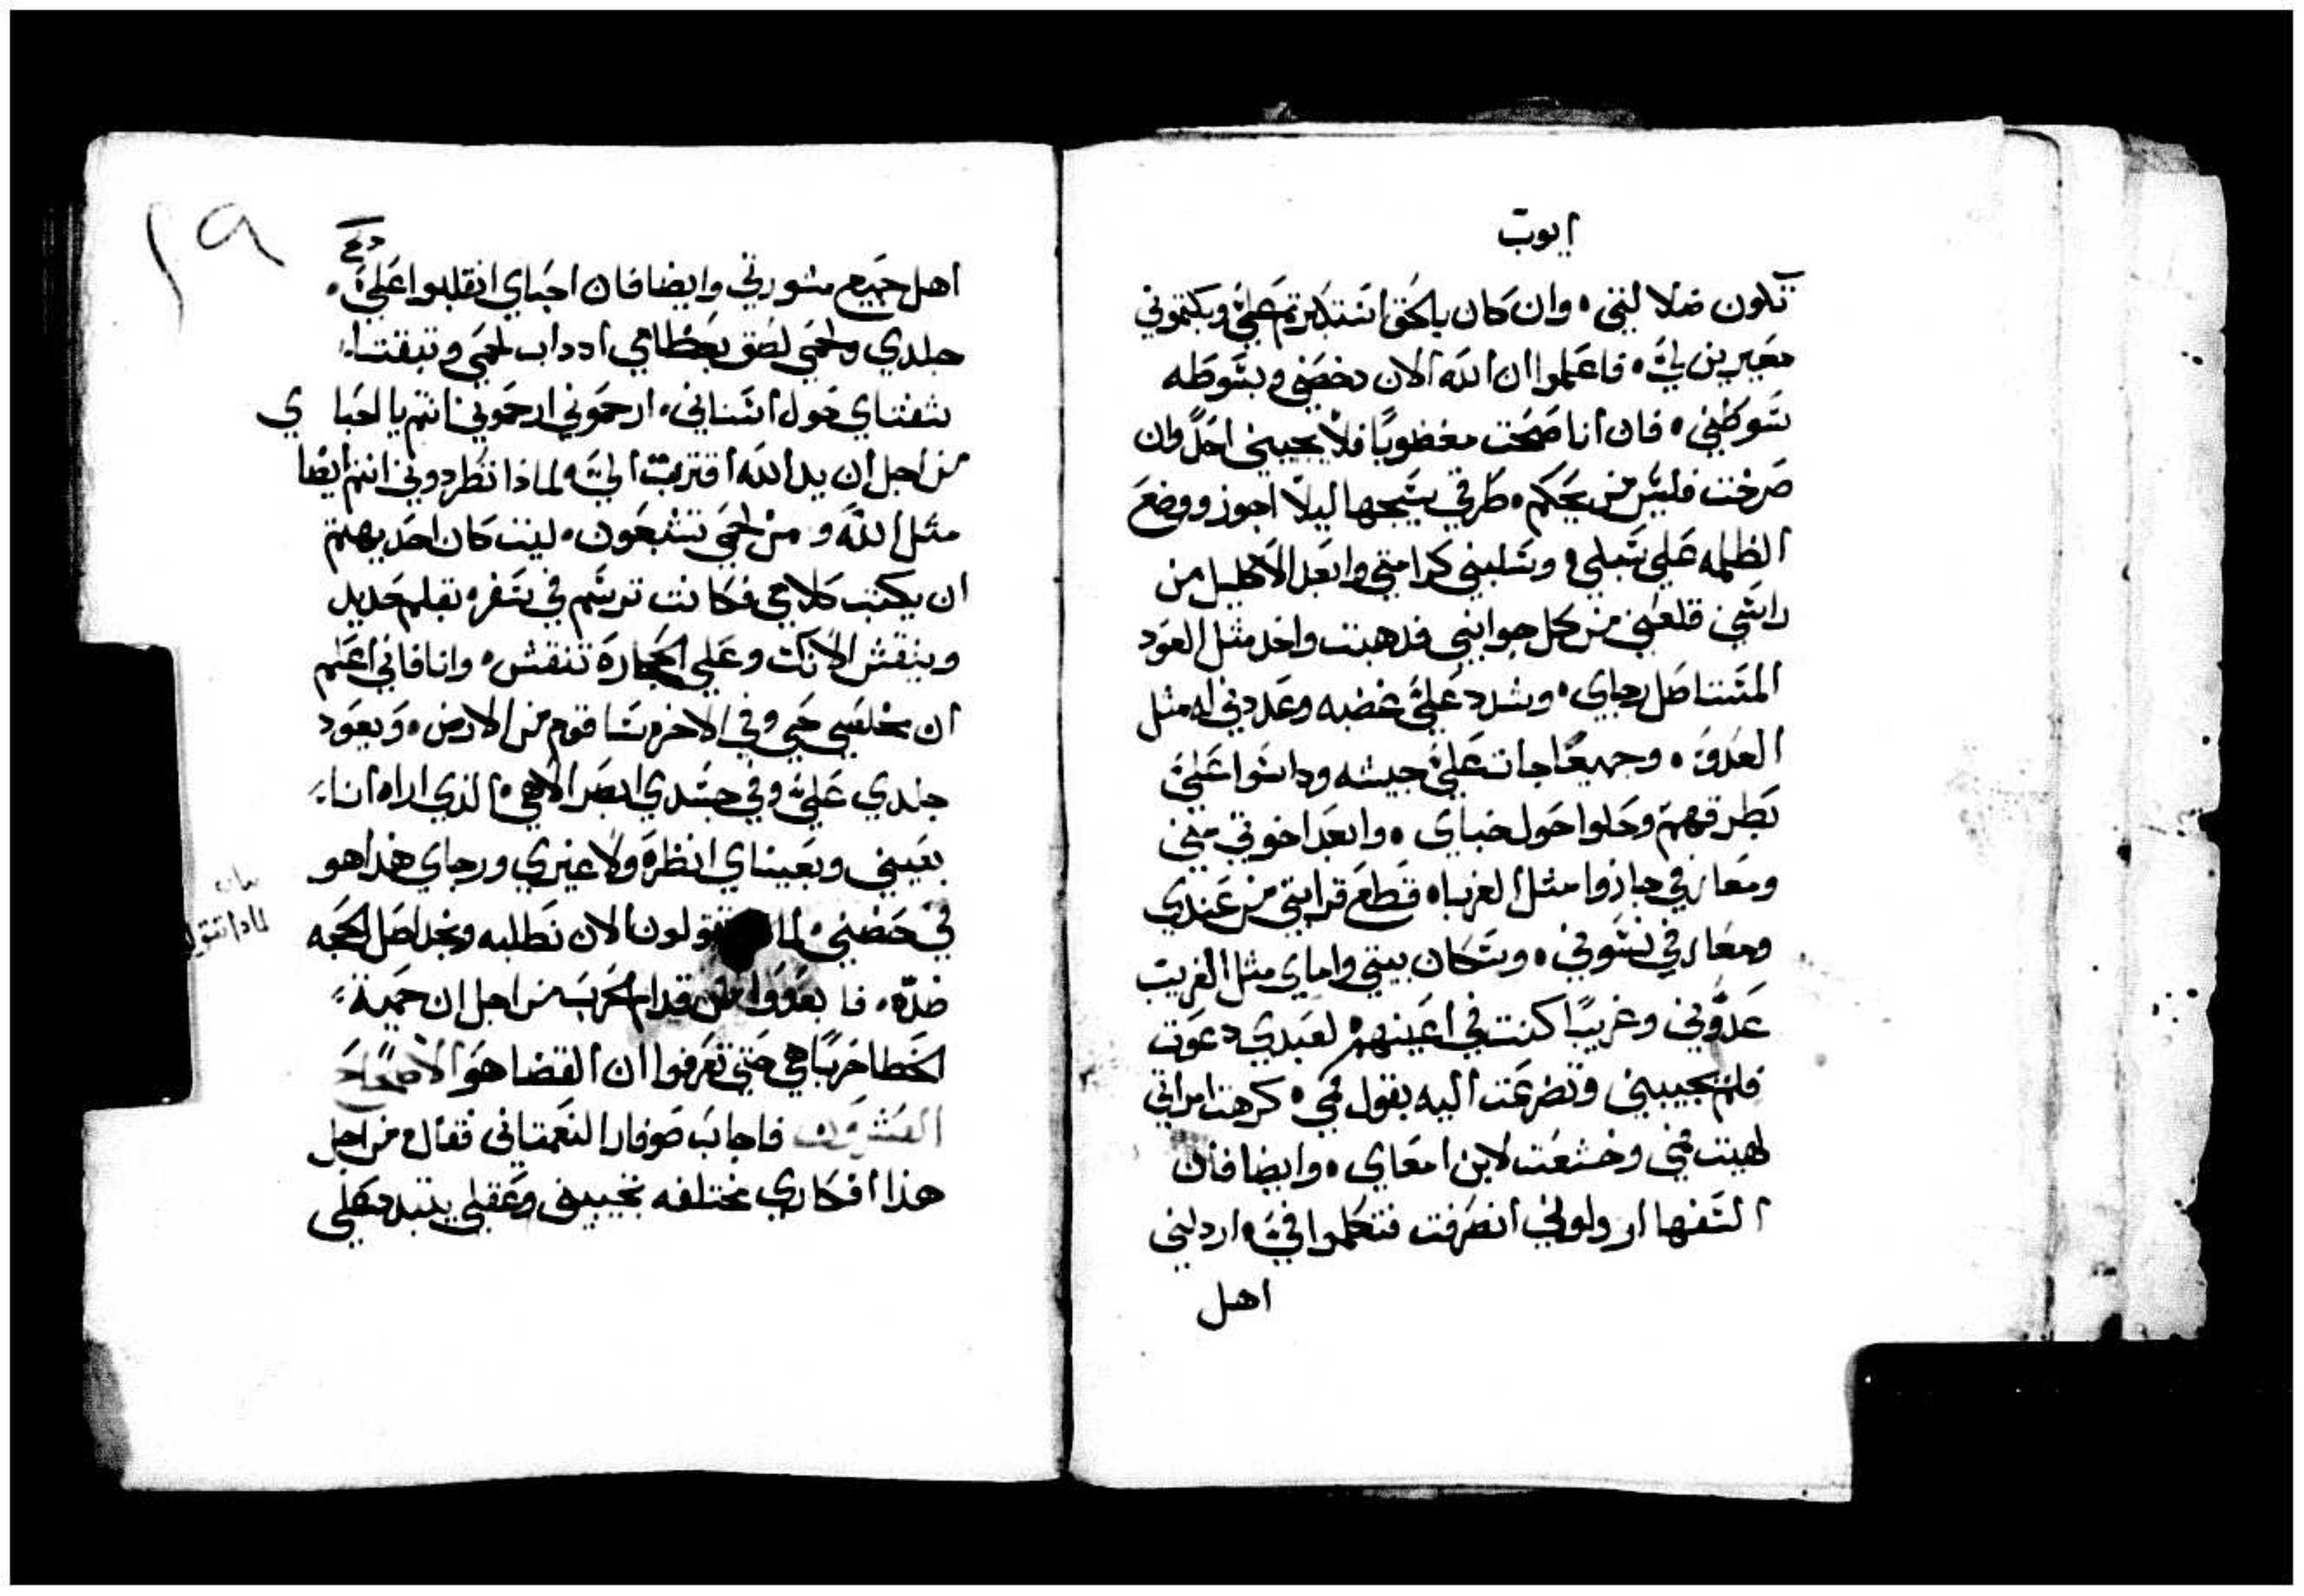 ايوب
تكون ضلالتي ٠ وان كان بالحق استكبرتم علي وبكتموني
معيرين لي ٠ فاعلموا ان الله الان دخضني وبسوطه
سوطني ٠ فان انا صحت مغضوبًا فلا يجيبني احدًا وان
صرخت فليس من يحكم ٠ طرقي سيجها ليلا اجوز ووضع
الظلمه علي سبلي ٠ وسلبني كرامتي وابعد الاكليل من
راسي قلعني من كل جوانبي فدهبت واخد مثل العود
المستاصل رجاي ٠ وشدد علي غضبه وعددني له مثل
العدو ٠ وجميعًا جات علي جيشه وداسوا علي
بطرقهم وحلوا حول خباي ٠ وابعد اخوتي مني
ومعارفي جازوا مثل الغربا ٠ قطع قرابتي من عندي
ومعارفي نسوني ٠ وسكان بيتي واماي مثل الغريب
عدوني وغريبًا كنت في اعينهم ٠ لعبدي دعوت
فلم يجيبني وتضرعت اليه بقول فمي ٠ كرهت امراتي
لهبت فمي وخشعت لابن امعاي ٠ وايضا فان
السفها ازدلوني انصرفت فتكلموا في ٠ اردلني
اهل
١٩
اهل جميع مشورتي وايضا فان احباي انقلبوا علي ٠
جلدي ولحمي لصق بعظامي اد داب لحمي وتبقتا
شفتاي حول اسناني ٠ ارحموني ارحموني انتم يا احباي
من اجل ان يد الله اقتربت الي ٠ لماذا تطردوني انتم ايضا
مثل الله و من لحمي تشبعون ٠ ليت كان احد يهتم
ان يكتب كلامي فكانت ترسم في سفره بقلم حديد
وينقش الانك وعلي الحجارة تنقش ٠ وانا فاني اعلم
ان مخلصي حي وفي الاخره ساقوم من الارض ٠ ويعود
جلدي علي وفي جسدي ابصر الاهي ٠ الذي اراه انا
بعيني وبعيناي انظره ولا غيري ورجاي هذا هو
في حضني ٠ تقولون الان نطلبه ونجد اصل الحجه
لمادا تقول
ضده ٠ فا بعدوا من قدام الحرب من اجل ان حمية
الخطا حربًا هي حتي تعرفوا ان القضا هو الاصحاح
العشرون فاجاب صوفار النعمتاني فقال من اجل
هذا افكاري مختلفه تجيبني وعقلي يتبدد علي